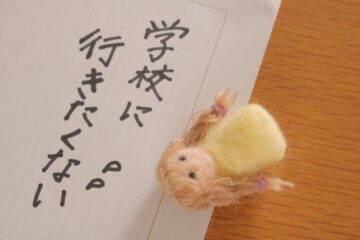 学校に
行きたくない。。